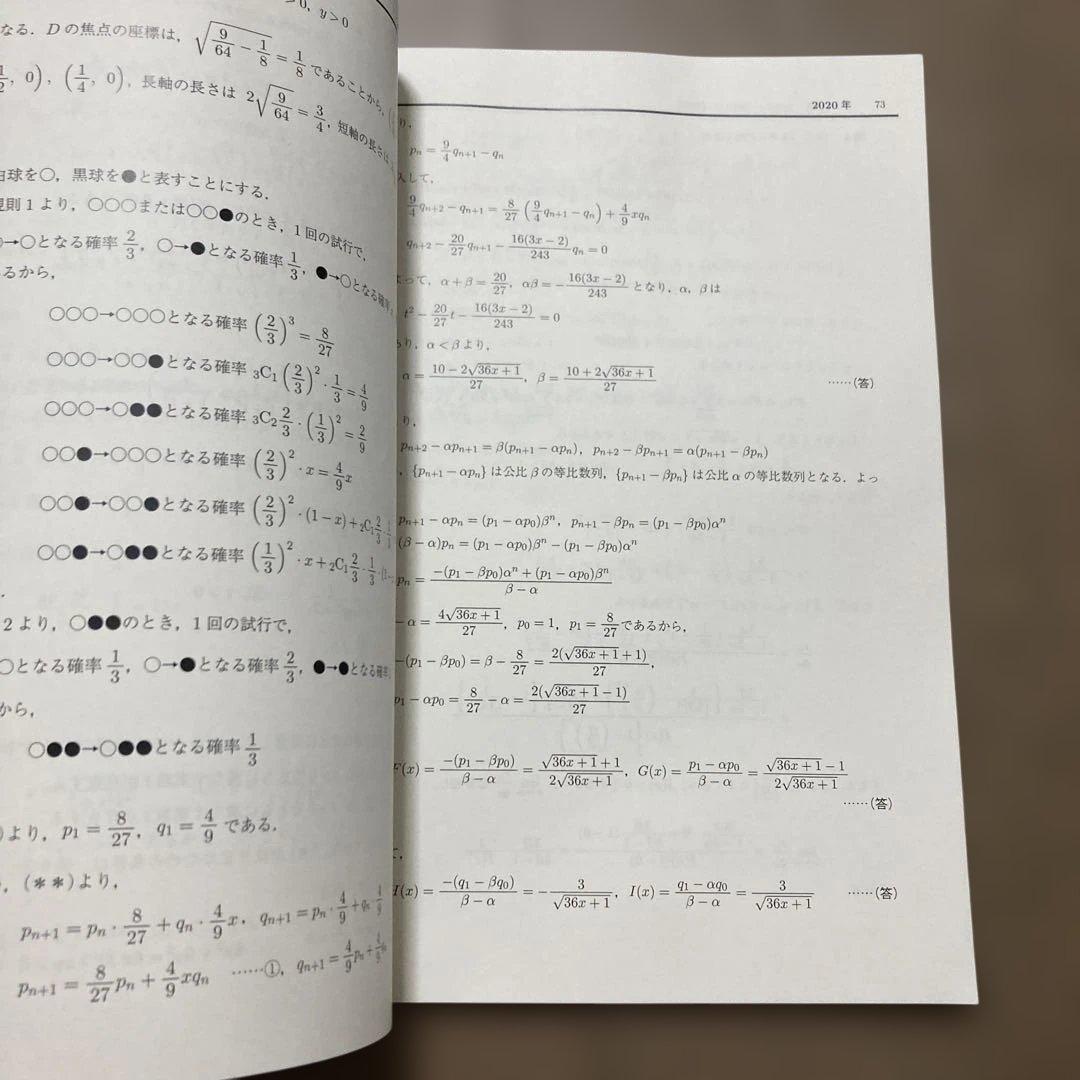 >0, y>0
なる．Dの焦点の座標は，√(9/64 − 1/8) = 1/8 であることから，
1/2, 0), (1/4, 0)，長軸の長さは 2√(9/64) = 3/4，短軸の長さは
白球を○，黒球を●と表すことにする．
規則1より，○○○または○○●のとき，1回の試行で，
○→○となる確率 2/3，○→●となる確率 1/3，●→○となる確率
るから，
○○○→○○○となる確率 (2/3)^3 = 8/27
○○○→○○●となる確率 ₃C₁(2/3)^2・1/3 = 4/9
○○○→○●●となる確率 ₃C₂ 2/3・(1/3)^2 = 2/9
○○●→○○○となる確率 (2/3)^2・x = 4/9 x
○○●→○○●となる確率 (2/3)^2・(1−x)+₂C₁ 2/3・1/3
○○●→○●●となる確率 (1/3)^2・x+₂C₁ 2/3・1/3・(1−
2より，○●●のとき，1回の試行で，
○となる確率 1/3，○→●となる確率 2/3，●→●となる確率
から，
○●●→○●●となる確率 1/3
より，p₁ = 8/27，q₁ = 4/9 である．
，(**)より，
p_{n+1} = p_n・8/27 + q_n・4/9 x，q_{n+1} = p_n・4/9 + q_n・4/9
p_{n+1} = 8/27 p_n + 4/9 xq_n ……①，q_{n+1} = 4/9 p_n + 4/9
2020年 73
p_n = 9/4 q_{n+1} − q_n
入して，
9/4 q_{n+2} − q_{n+1} = 8/27 (9/4 q_{n+1} − q_n) + 4/9 xq_n
q_{n+2} − 20/27 q_{n+1} − 16(3x−2)/243 q_n = 0
よって，α+β = 20/27，αβ = −16(3x−2)/243 となり，α，βは
t² − 20/27 t − 16(3x−2)/243 = 0
り，α<βより，
α = (10−2√(36x+1))/27，β = (10+2√(36x+1))/27 ……(答)
り，
p_{n+2} − αp_{n+1} = β(p_{n+1} − αp_n)，p_{n+2} − βp_{n+1} = α(p_{n+1} − βp_n)
，{p_{n+1} − αp_n}は公比βの等比数列，{p_{n+1} − βp_n}は公比αの等比数列となる．よっ
p_{n+1} − αp_n = (p₁ − αp₀)βⁿ，p_{n+1} − βp_n = (p₁ − βp₀)αⁿ
(β − α)p_n = (p₁ − αp₀)βⁿ − (p₁ − βp₀)αⁿ
p_n = (−(p₁ − βp₀)αⁿ + (p₁ − αp₀)βⁿ)/(β − α)
− α = 4√(36x+1)/27，p₀ = 1，p₁ = 8/27 であるから，
−(p₁ − βp₀) = β − 8/27 = 2(√(36x+1)+1)/27，
p₁ − αp₀ = 8/27 − α = 2(√(36x+1)−1)/27
F(x) = −(p₁ − βp₀)/(β − α) = (√(36x+1)+1)/(2√(36x+1))，G(x) = (p₁ − αp₀)/(β − α) = (√(36x+1)−1)/(2√(36x+1))
……(答)
て，
H(x) = −(q₁ − βq₀)/(β − α) = −3/√(36x+1)，I(x) = (q₁ − αq₀)/(β − α) = 3/√(36x+1) ……(答)